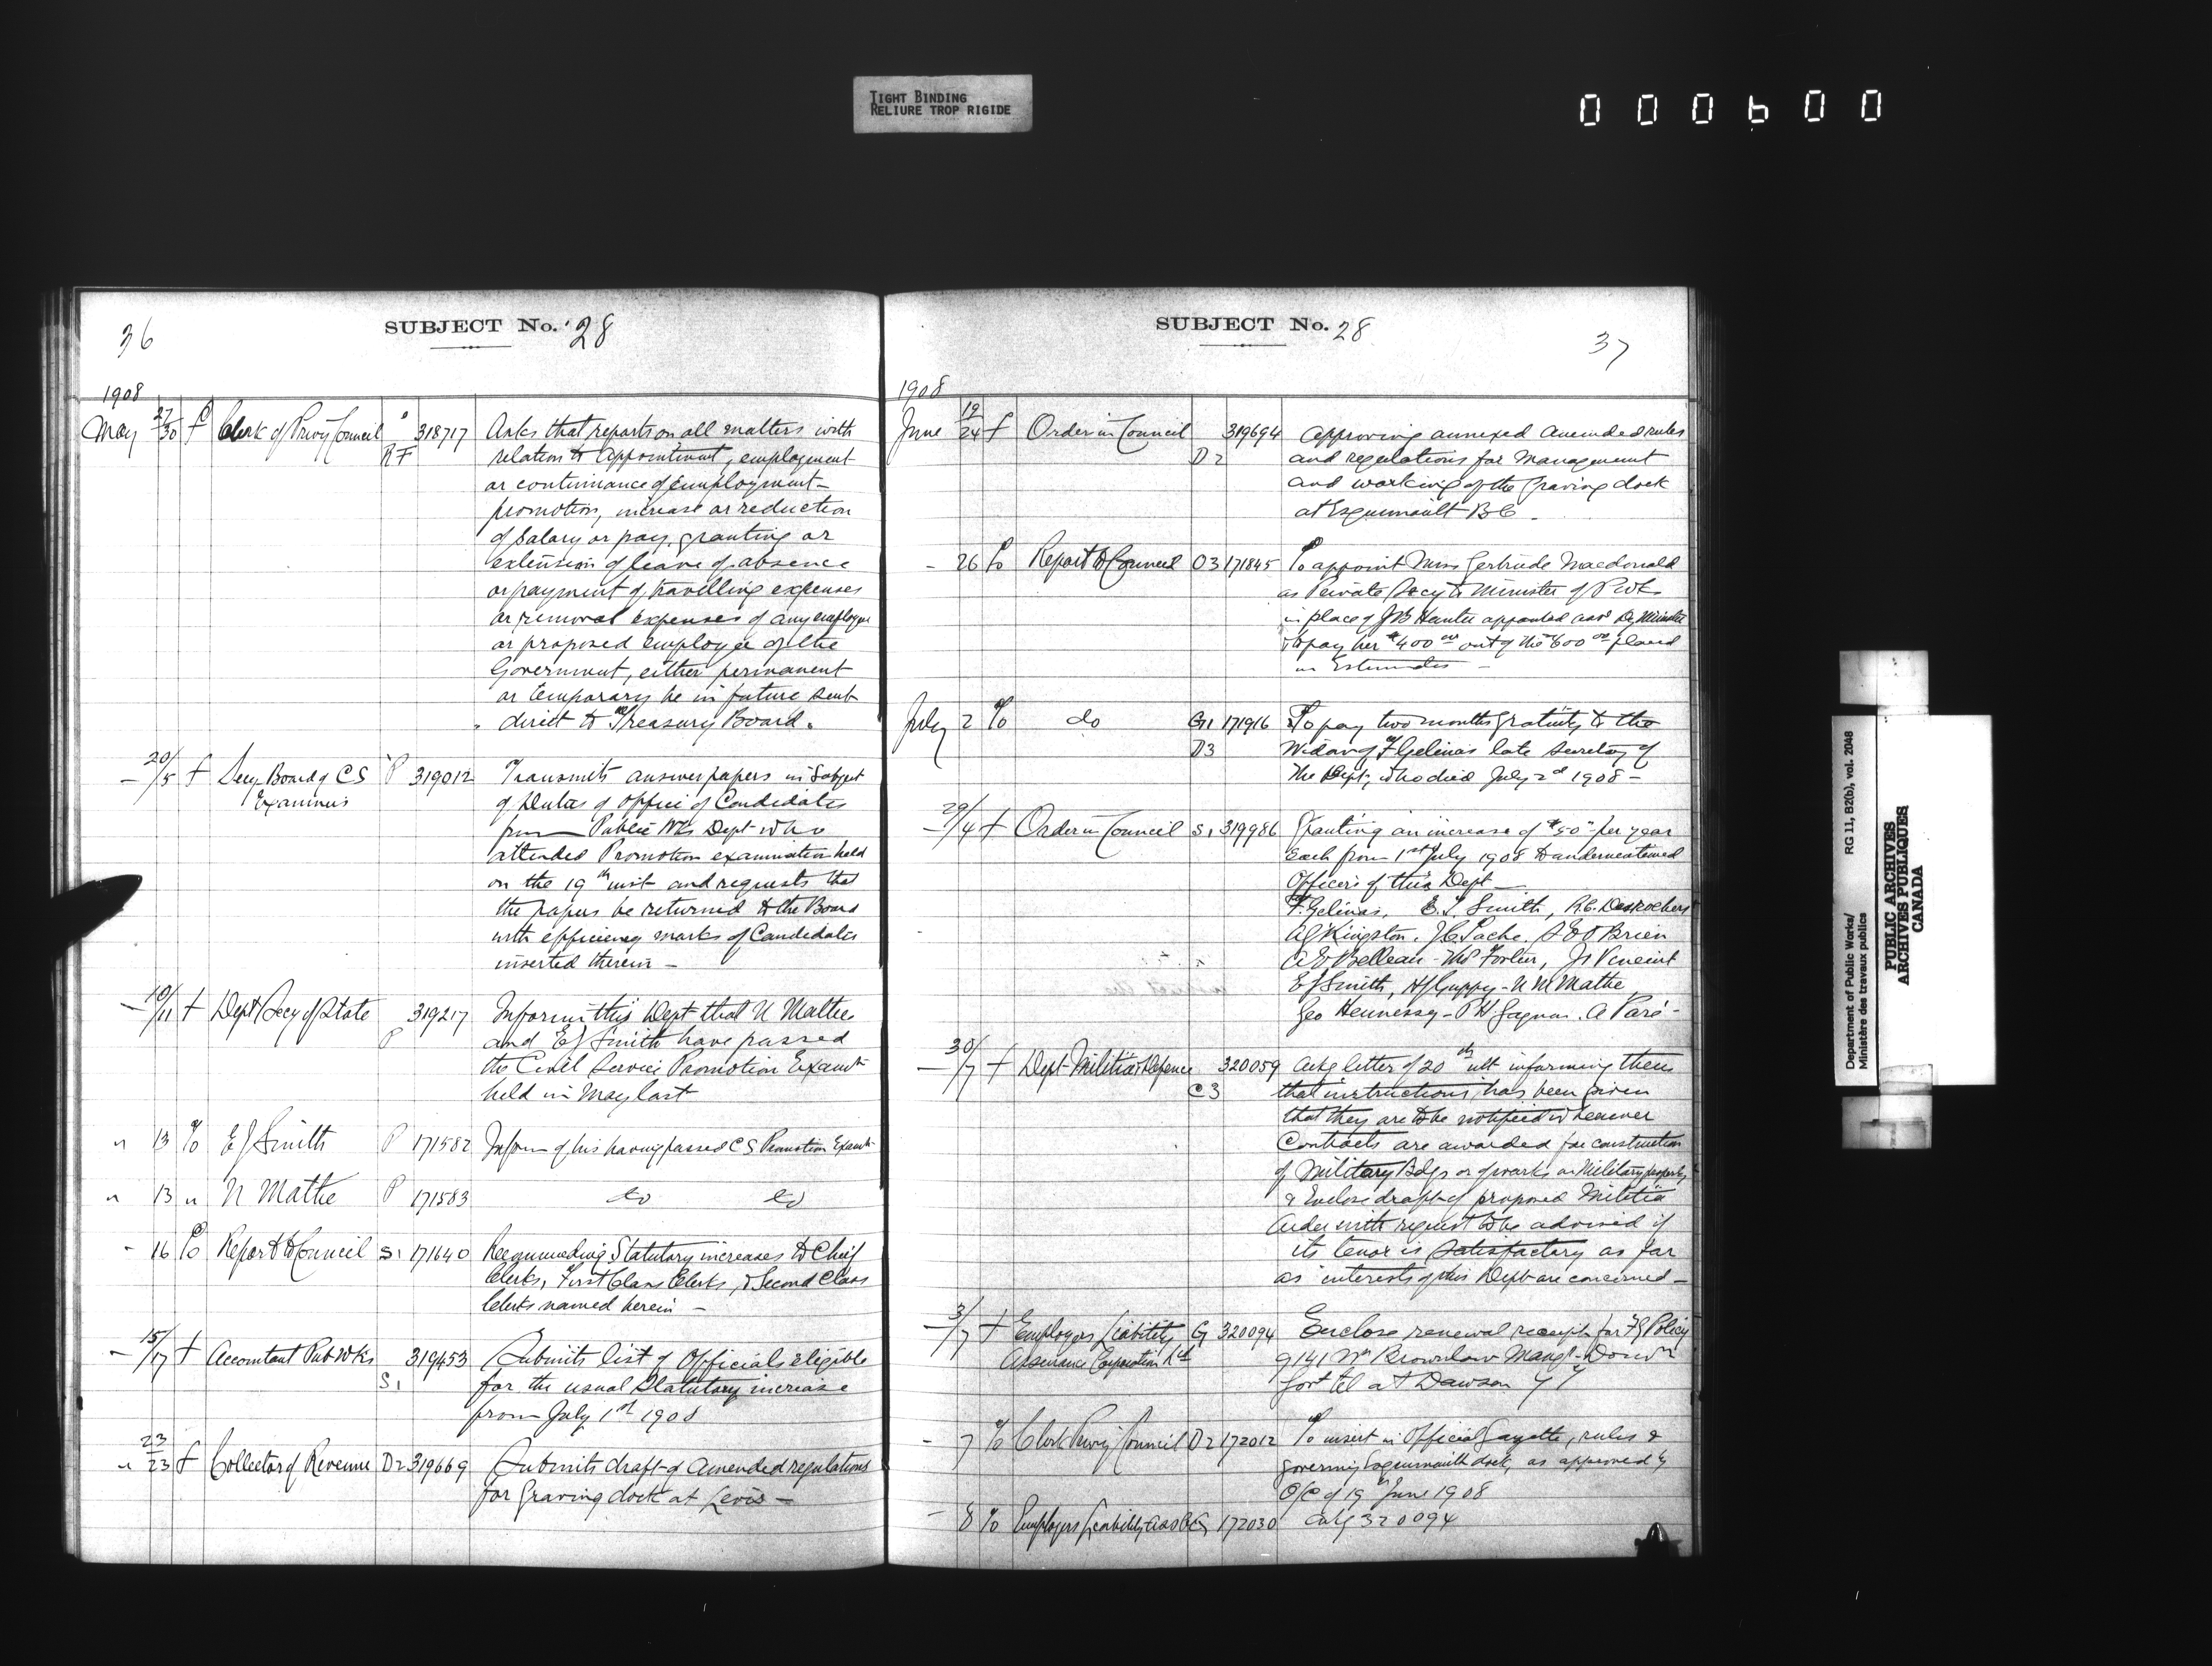 TIGHT BINDING
RELIURE TROP RIGIDE
000600
36
SUBJECT No. 28
1908
May 27/30 f Clerk of Privy Council RF 318717 Asks that reports on all matters with
relation to appointment, employment
or continuance of employment
promotion, increase or reduction
of salary or pay, granting or
extension of leave of absence
or payment of travelling expenses
or removal expenses of any employee
or proposed employee of the
Government, either permanent
or temporary be in future sent
direct to Treasury Board.
20/5 f Secy Board of CS P 319012 Transmits answer papers in Subject
Examiners of Duties of Office of Candidates
from Public Wks Dept who
attended Promotion examination held
on the 19th inst and requests that
the papers be returned to the Board
with efficiency marks of Candidates
inserted therein —
— 10/11 f Dept Secy of State P 319217 Inform this Dept that N Mathe
and EJ Smith have passed
the Civil Service Promotion Examt
held in May last
" 13 To EJ Smith P 171582 Inform of his having passed CS Promotion Examt
" 13 " N Mathe P 171583 do do
- 16 To Report to Council S1 171640 Recommending Statutory increases to Chief
Clerks, First Class Clerks, & Second Class
Clerks named herein —
- 15/17 f Accountant Pub Wks S1 319453 Submits list of Officials eligible
for the usual Statutory increase
from July 1st 1908
" 23/23 f Collector of Revenue D2 319669 Submits draft of amended regulations
for Graving dock at Levis —
SUBJECT No. 28
37
1908
June 19/24 f Order in Council D2 319694 Approving annexed amended rules
and regulations for management
and working of the Graving dock
at Esquimault BC.
- 26 To Report to Council O3 171845 To appoint Miss Gertrude Macdonald
as Private Secy to Minister of PWks
in place of JB Hunter appointed asst Dy Minister
& to pay her $400 00 out of the 600 00 placed
in Estimates —
July 2 To do G1 171916 To pay two months gratuity to the
D3 Widow of F Gelinas late Secretary of
the Dept, who died July 2d 1908 —
— 29/4 f Order in Council S1 319986 Granting an increase of $50 per year
each from 1st July 1908 to undermentioned
Officers of this Dept —
F. Gelinas, E.T. Smith, R.C. Desrochers
AG Kingston, JC Tache, S E O'Brien
A E Belleau - Fortier, Vincent
EJ Smith, HJ Guppy - N M Mathe
Geo Hennessy - P H Gagnon. A Paré -
— 30/7 f Dept Militia & Defence C3 320059 Ackg letter of 20th ult informing them
that instructions has been given
that they are to be notified whenever
Contracts are awarded for construction
of Military Bdgs or of works on Military property
& Enclose draft of proposed Militia
Order with request to be advised if
its tenor is satisfactory as far
as interests of this Dept are concerned —
— 3/7 f Employers Liability G 320094 Enclose renewal receipt for FG Policy
Assurance Corporation Ltd 9141 Wm Brownlow Mangr Domn
Govt Tel at Dawson YT
- 7 To Clerk Privy Council D2 172012 To insert in Official Gazette, rules &
governing Esquimault dock, as approved by
O/C of 19th June 1908
- 8 To Employers Liability G 172030 Ackg 320094
Department of Public Works/
Ministère des travaux publics
RG 11, B2(b), vol. 2048
PUBLIC ARCHIVES
ARCHIVES PUBLIQUES
CANADA